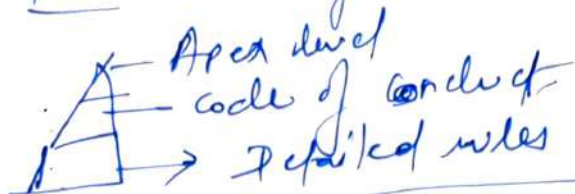 Apex level
code of conduct
Detailed rules